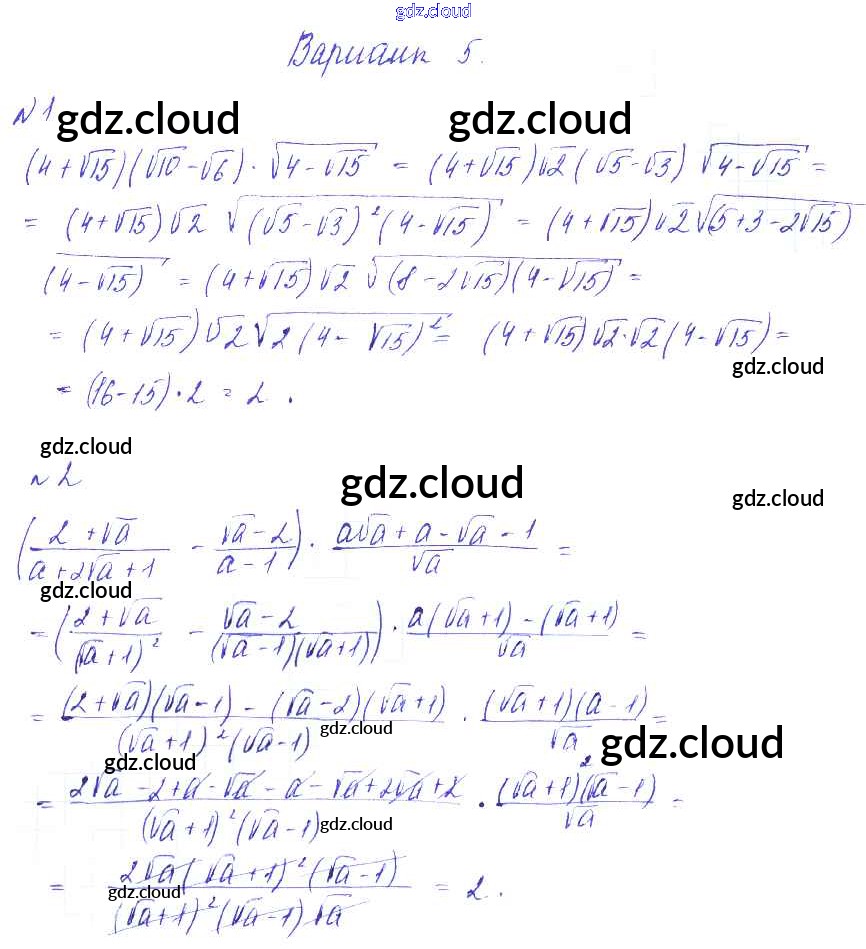 gdz.cloud
Вариант 5.
N 1
gdz.cloud gdz.cloud
(4+√15)(√10-√6)·√(4-√15) = (4+√15)√2(√5-√3)√(4-√15) =
= (4+√15)√2 √((√5-√3)²(4-√15)) = (4+√15)√2√((5+3-2√15)
(4-√15)) = (4+√15)√2 √((8-2√15)(4-√15)) =
= (4+√15)√2√(2(4-√15)²) = (4+√15)√2·√2(4-√15) =
gdz.cloud
= (16-15)·2 = 2.
gdz.cloud
N 2
gdz.cloud
gdz.cloud
((2+√a)/(a+2√a+1) - (√a-2)/(a-1)) · (a√a+a-√a-1)/√a =
gdz.cloud
= ((2+√a)/(√a+1)² - (√a-2)/((√a-1)(√a+1))) · (a(√a+1)-(√a+1))/√a =
= ((2+√a)(√a-1)-(√a-2)(√a+1))/((√a+1)²(√a-1)) · ((√a+1)(a-1))/√a =
gdz.cloud
gdz.cloud
gdz.cloud
= (2√a-2+a-√a-a-√a+2√a+2)/((√a+1)²(√a-1)) · ((√a+1)²(√a-1))/√a =
gdz.cloud
= (2√a(√a+1)²(√a-1))/((√a+1)²(√a-1)√a) = 2.
gdz.cloud